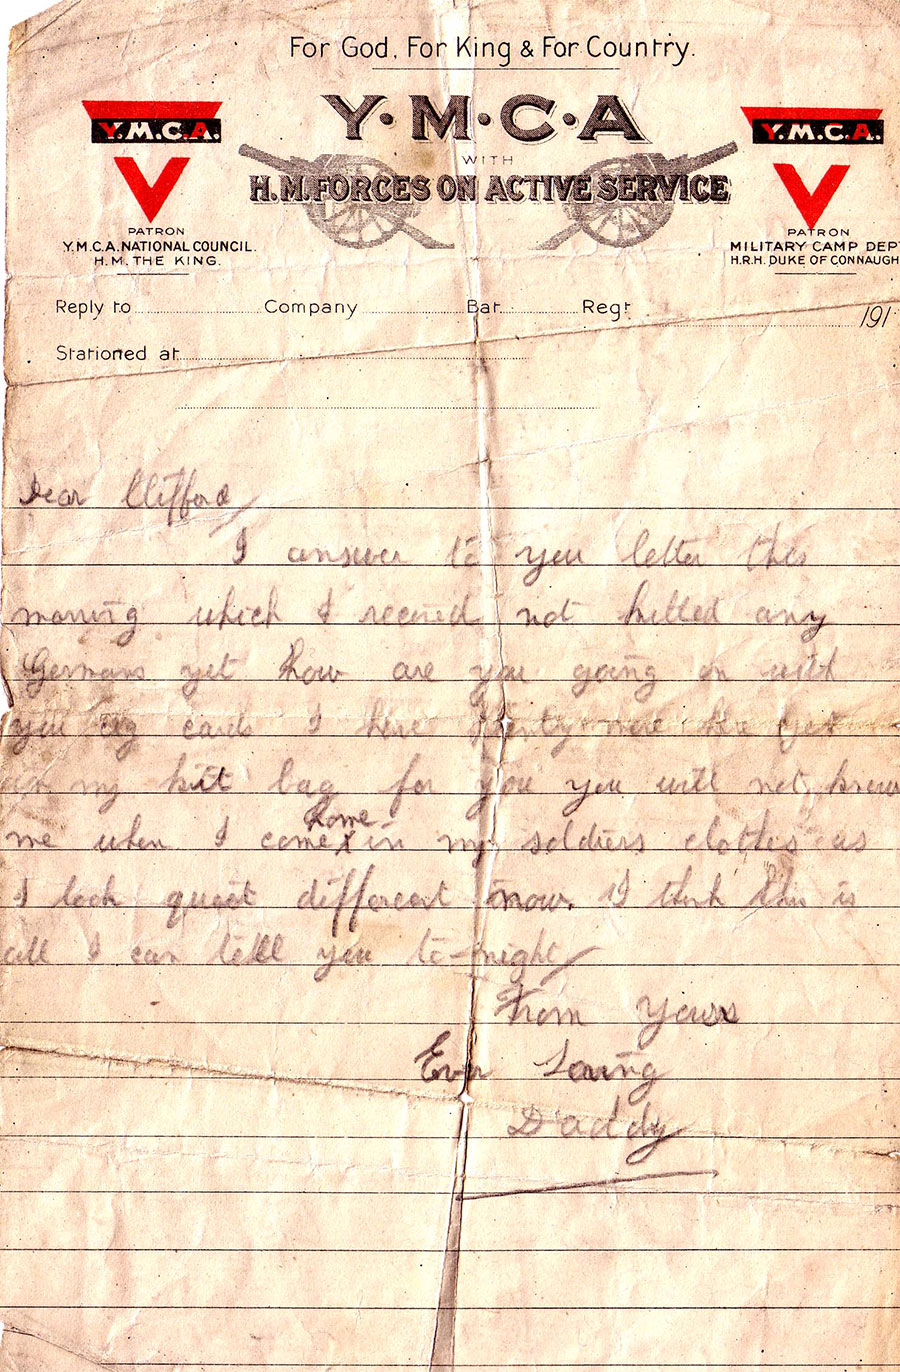 For God, For King & For Country.
Y·M·C·A
WITH
H.M. FORCES ON ACTIVE SERVICE
Y.M.C.A.
PATRON
Y.M.C.A. NATIONAL COUNCIL.
H.M. THE KING.
Y.M.C.A.
PATRON
MILITARY CAMP DEPT
H.R.H. DUKE OF CONNAUGH
Reply to Company Bat. Regt 191
Stationed at
Dear Clifford
I answer to you letter this
morning which I received not killed any
Germans yet how are you going on with
you cig cards I have plenty more
my kit bag for you you will not know
me when I come home in my soldiers clothes as
I look queit differeent now. I think this is
all I can tell you to-night
From Yours
Ever Loving
Daddy